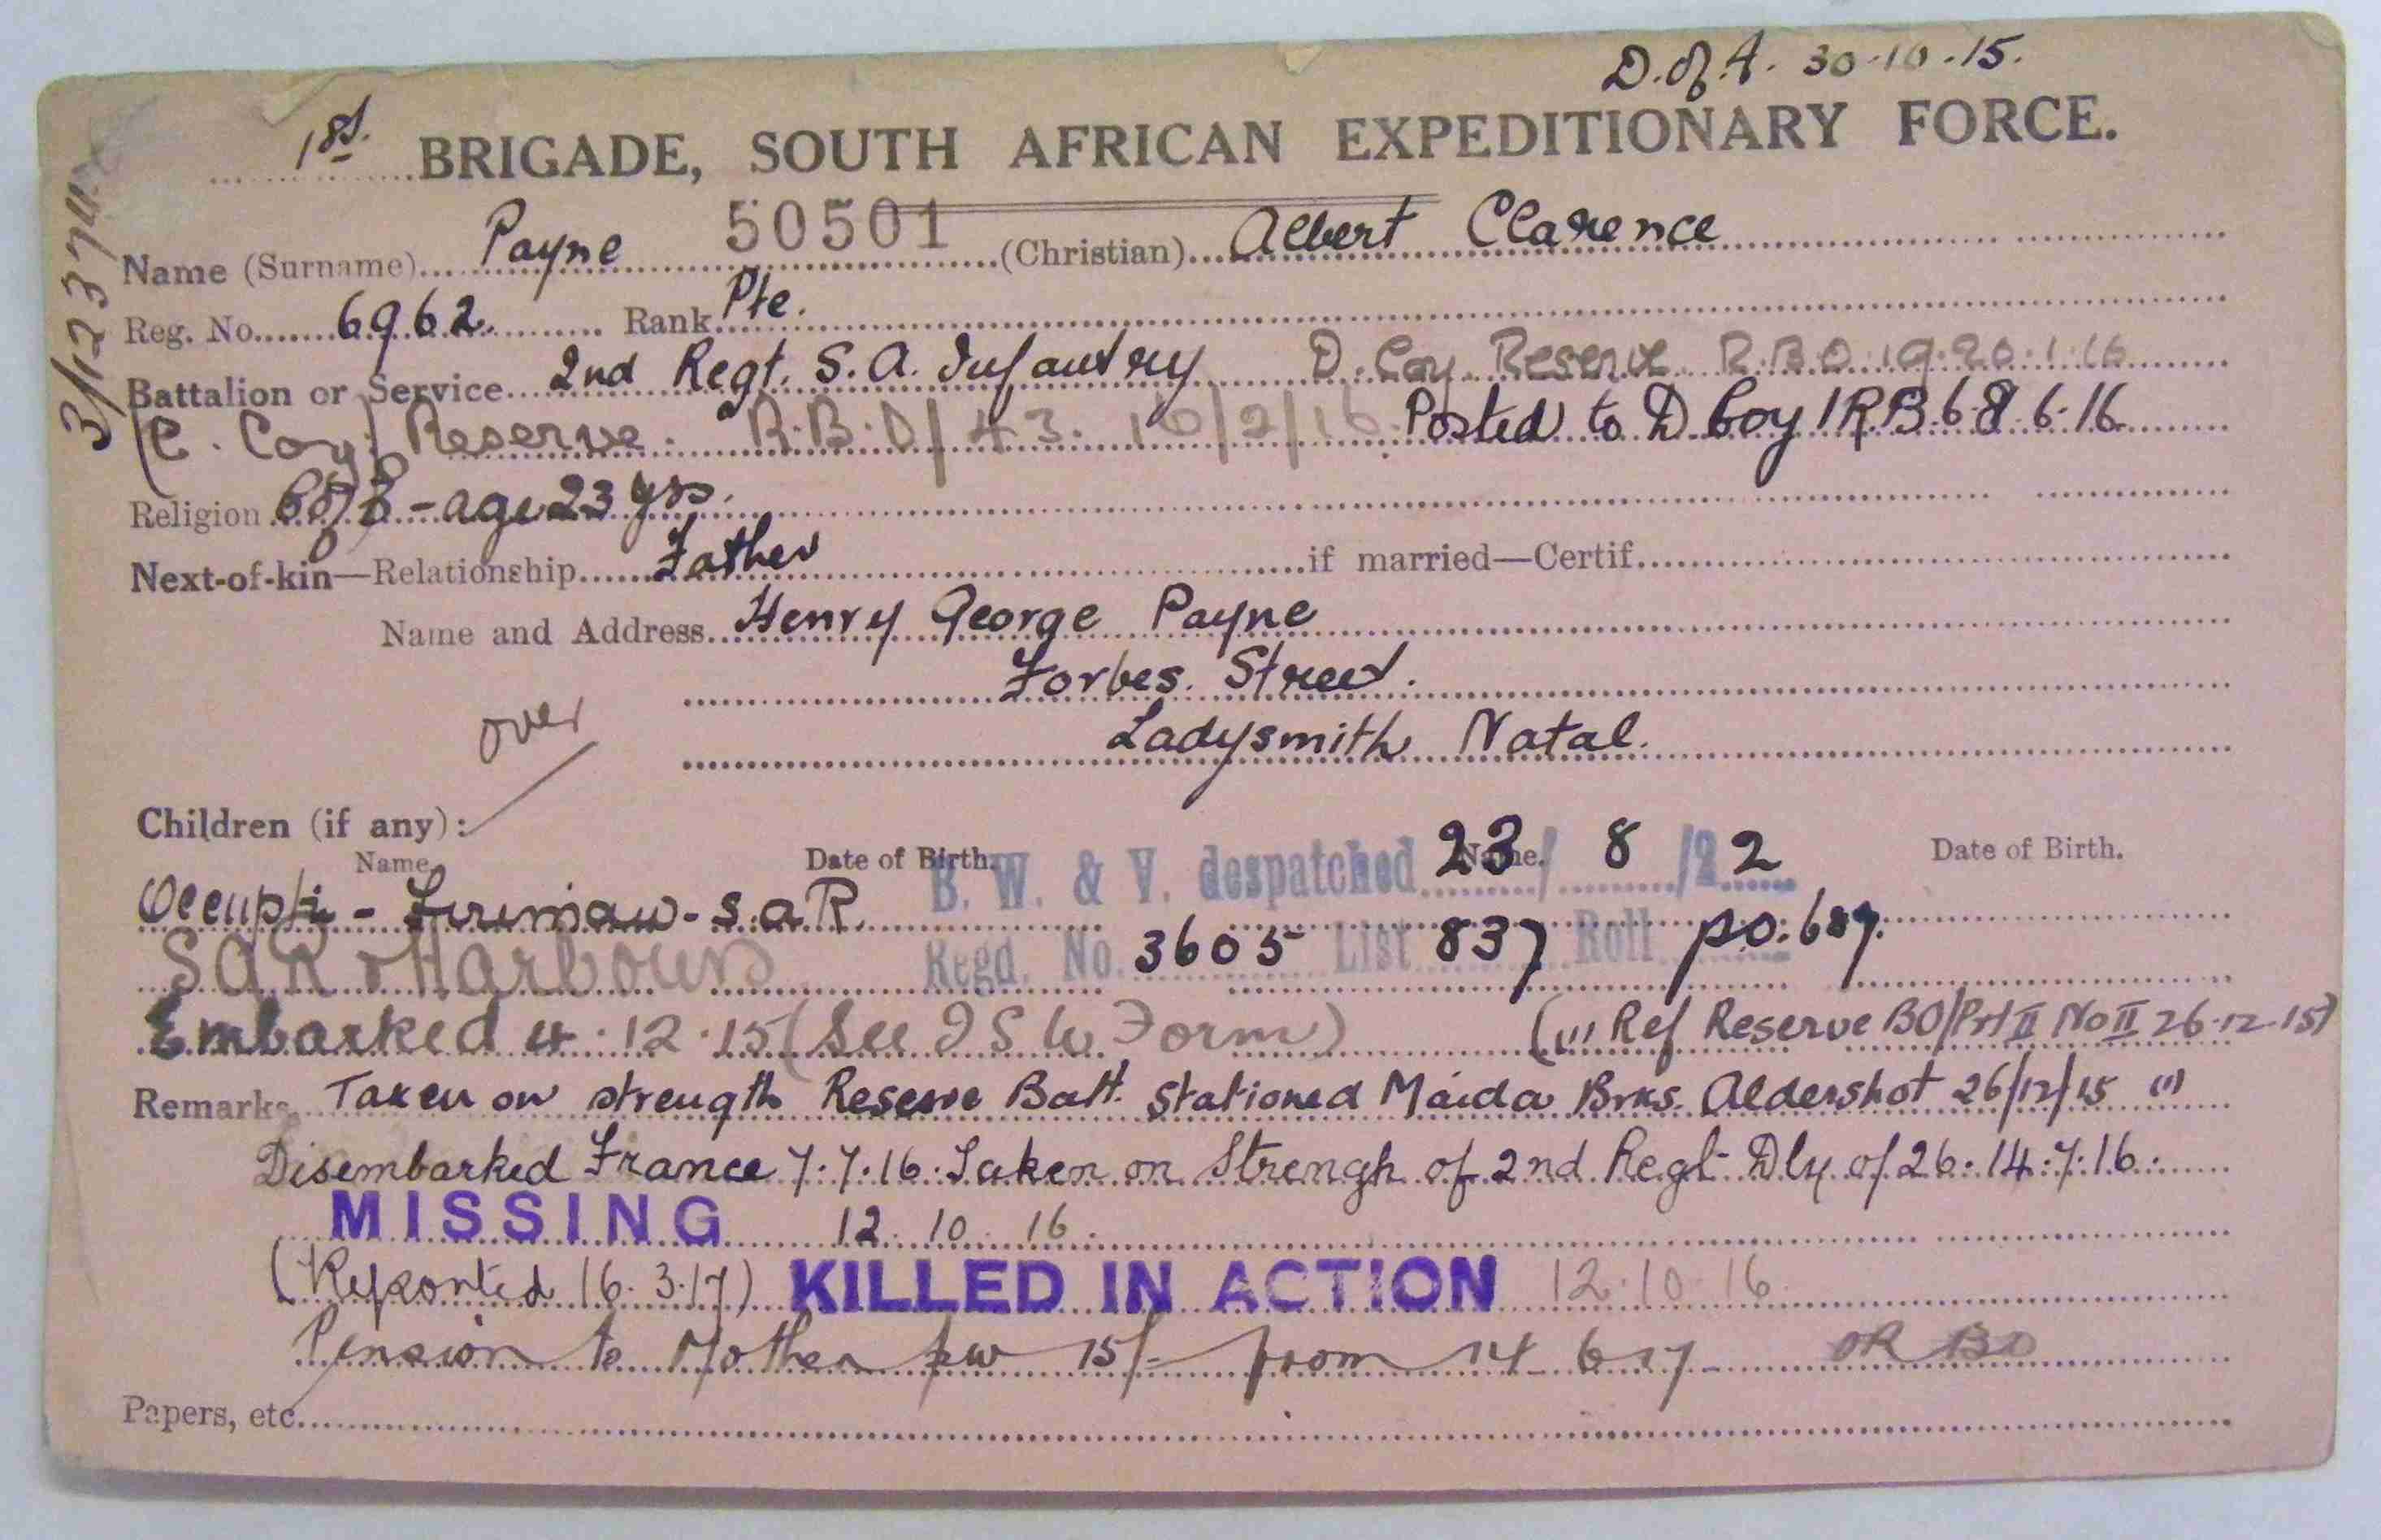 D. of A. 30.10.15.
1st. BRIGADE, SOUTH AFRICAN EXPEDITIONARY FORCE.
3/12374
Name (Surname) Payne 50501 (Christian) Albert Clarence
Reg. No. 6962 Rank Pte.
Battalion or Service 2nd Regt. S. A. Infantry D. Coy Reserve R.B.O. 19. 20.1.16
(C. Coy) Reserve. R.B.O/43. 16/2/16. Posted to D Coy 1RB.68.6.16
Religion C of E - age 23 yrs.
Next-of-kin—Relationship Father if married—Certif.
Name and Address Henry George Payne
Forbes. Street.
Ladysmith Natal.
over
Children (if any):
Name. Date of Birth. Name. Date of Birth.
B. W. & V. despatched 23/8/22
Occupti - Fireman - S.A.R.
SAR & Harbours
Regd. No. 3605 List 837 Roll po. 687.
Embarked 4.12.15 (See I S W Form) (") Ref Reserve BO/Prt II No II 26.12.15)
Remarks Taken on strength Reserve Batt. Stationed Maida Brks. Aldershot 26/12/15 (")
Disembarked France 7.7.16. Taken on Strengh of 2nd Regt Dly of 26. 14.7.16.
MISSING 12.10.16.
(Reported 16.3.17) KILLED IN ACTION 12.10.16
Pension to Mother pw 15/- from 14 6 17
Papers, etc.